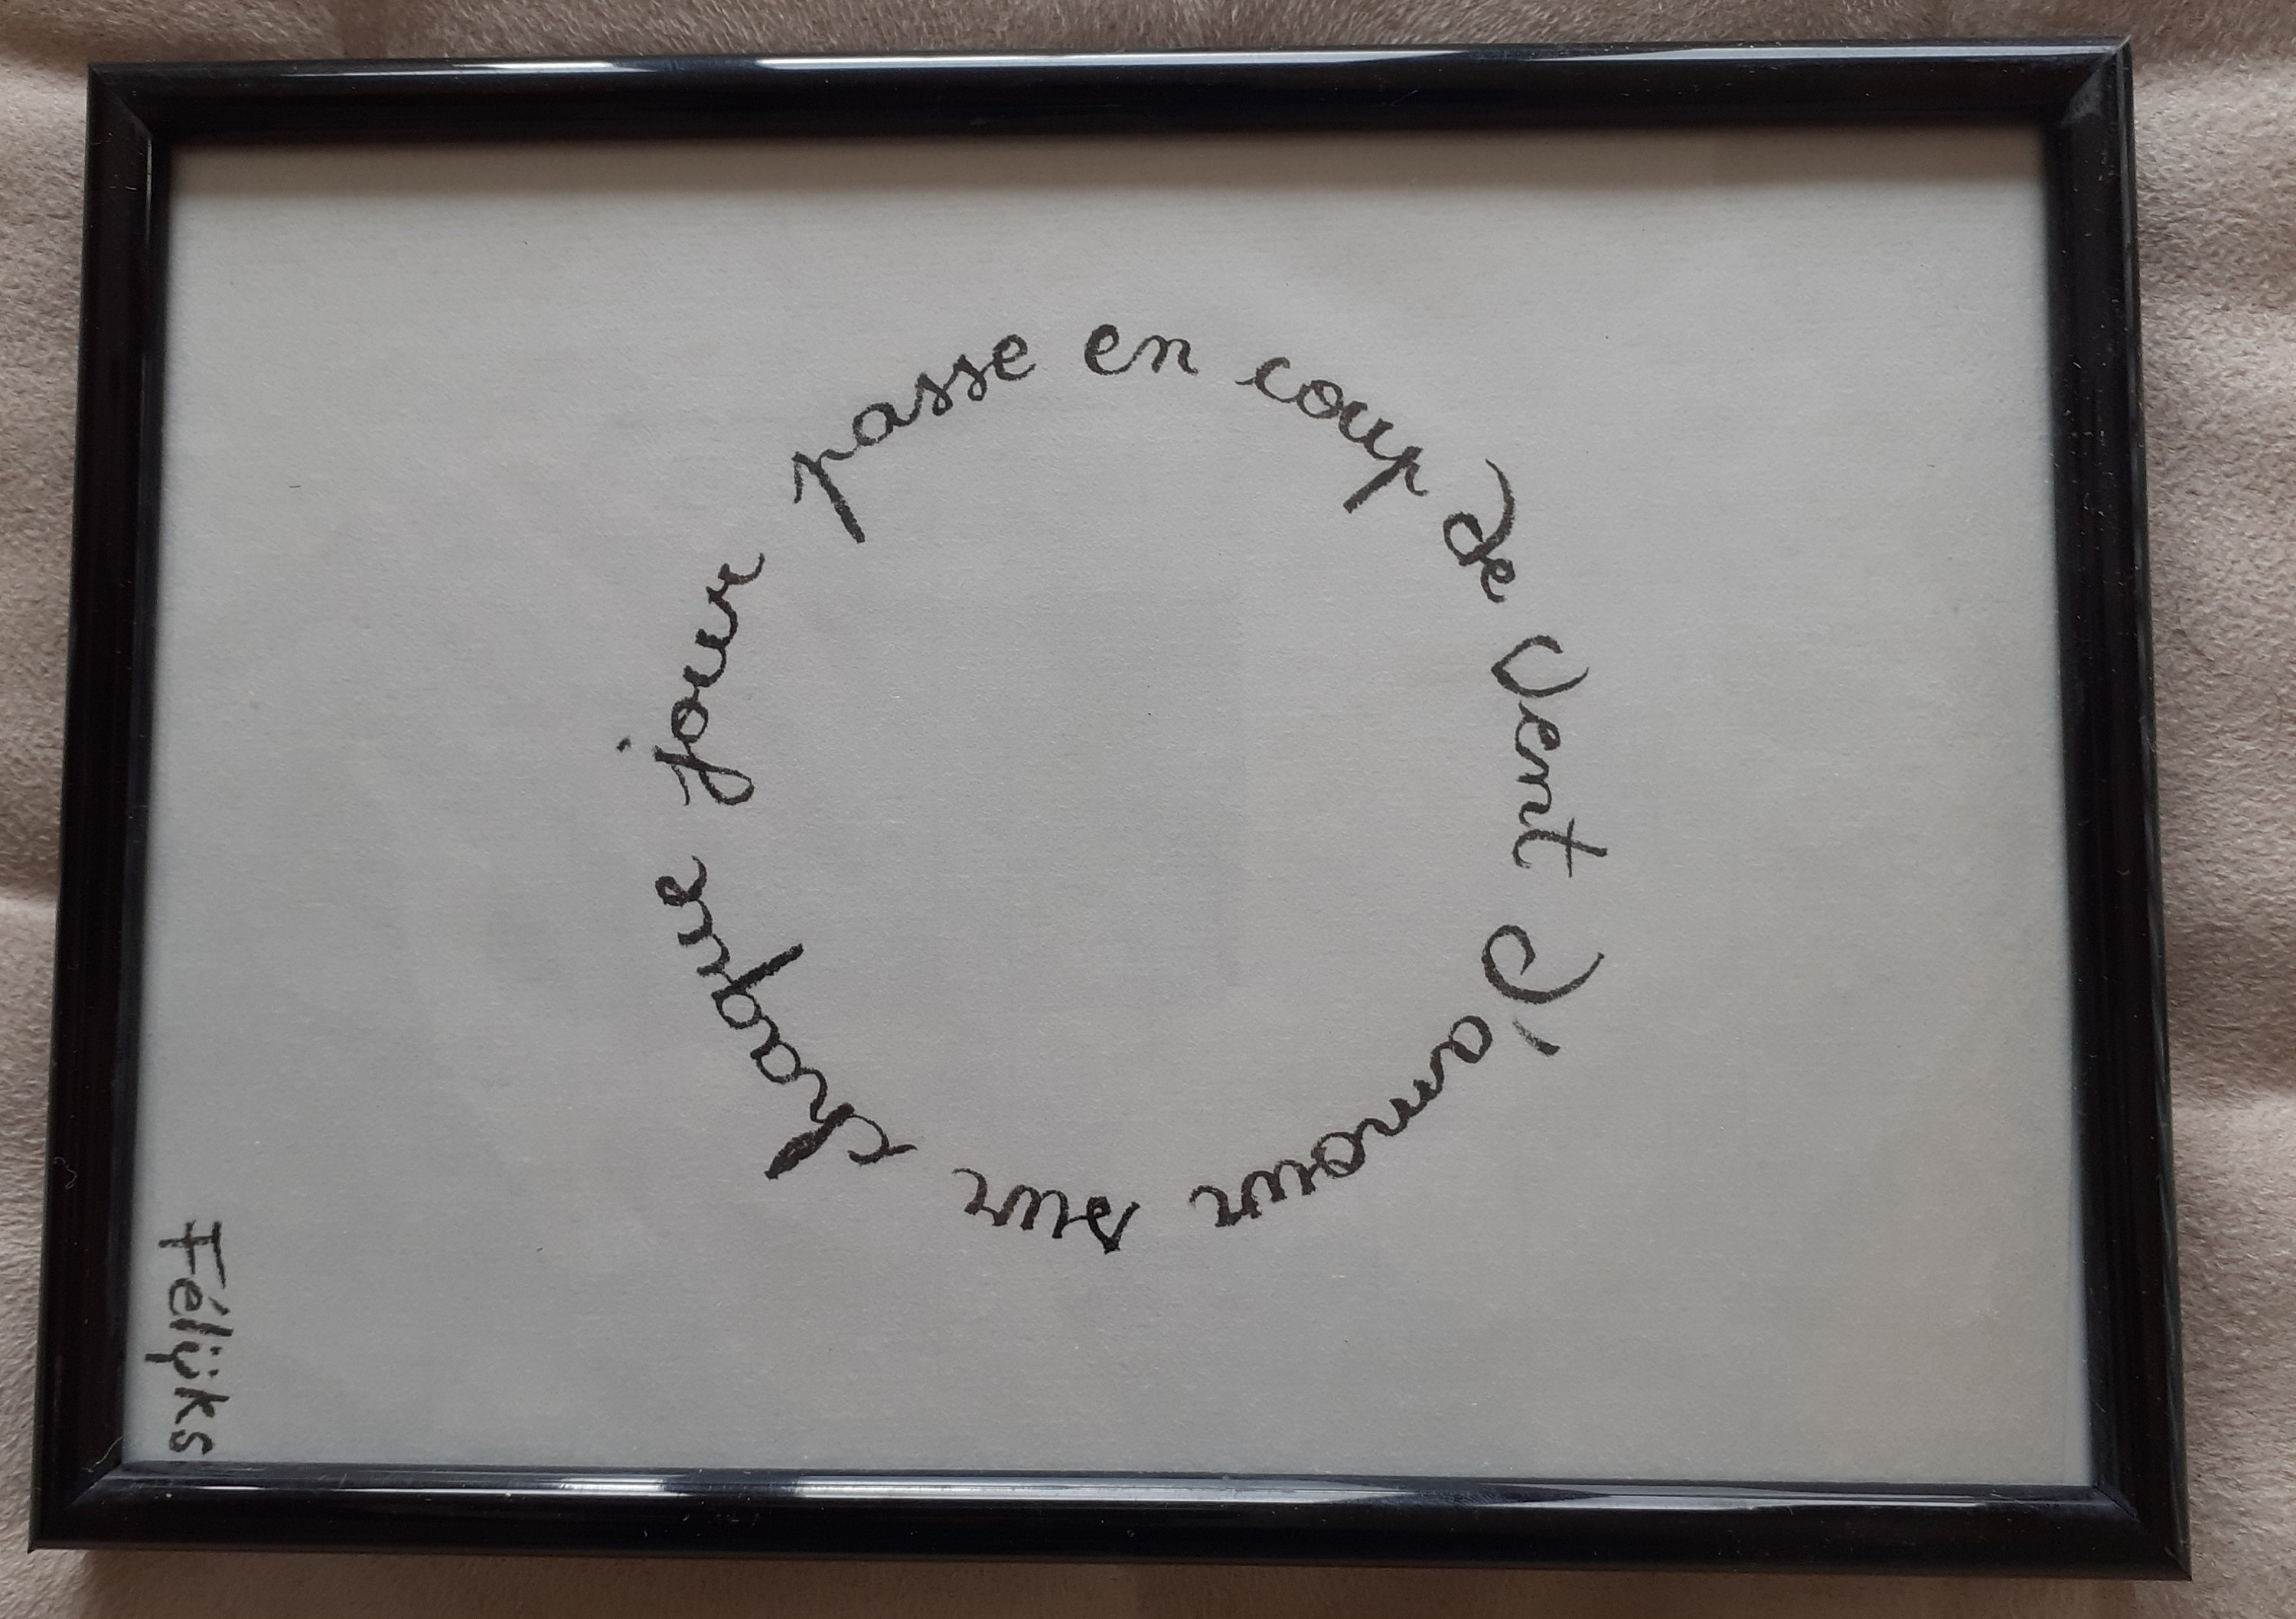 chaque jour passe en coup de vent d'amour sur
Félijks